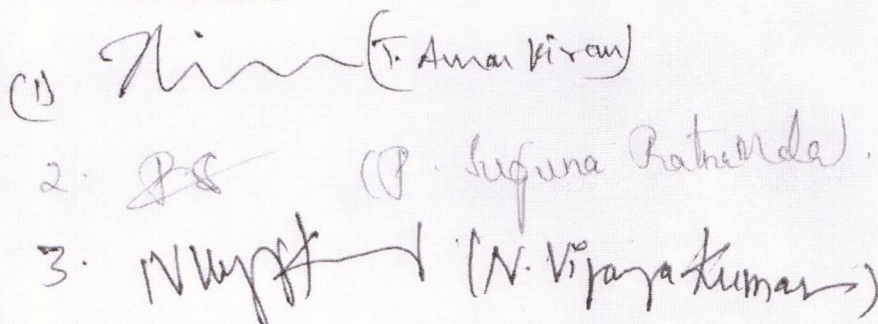 (1) (T. Amar Kiran)
2. PS (P. Suguna Ratnamala).
3. (N. Vijaya Kumar)